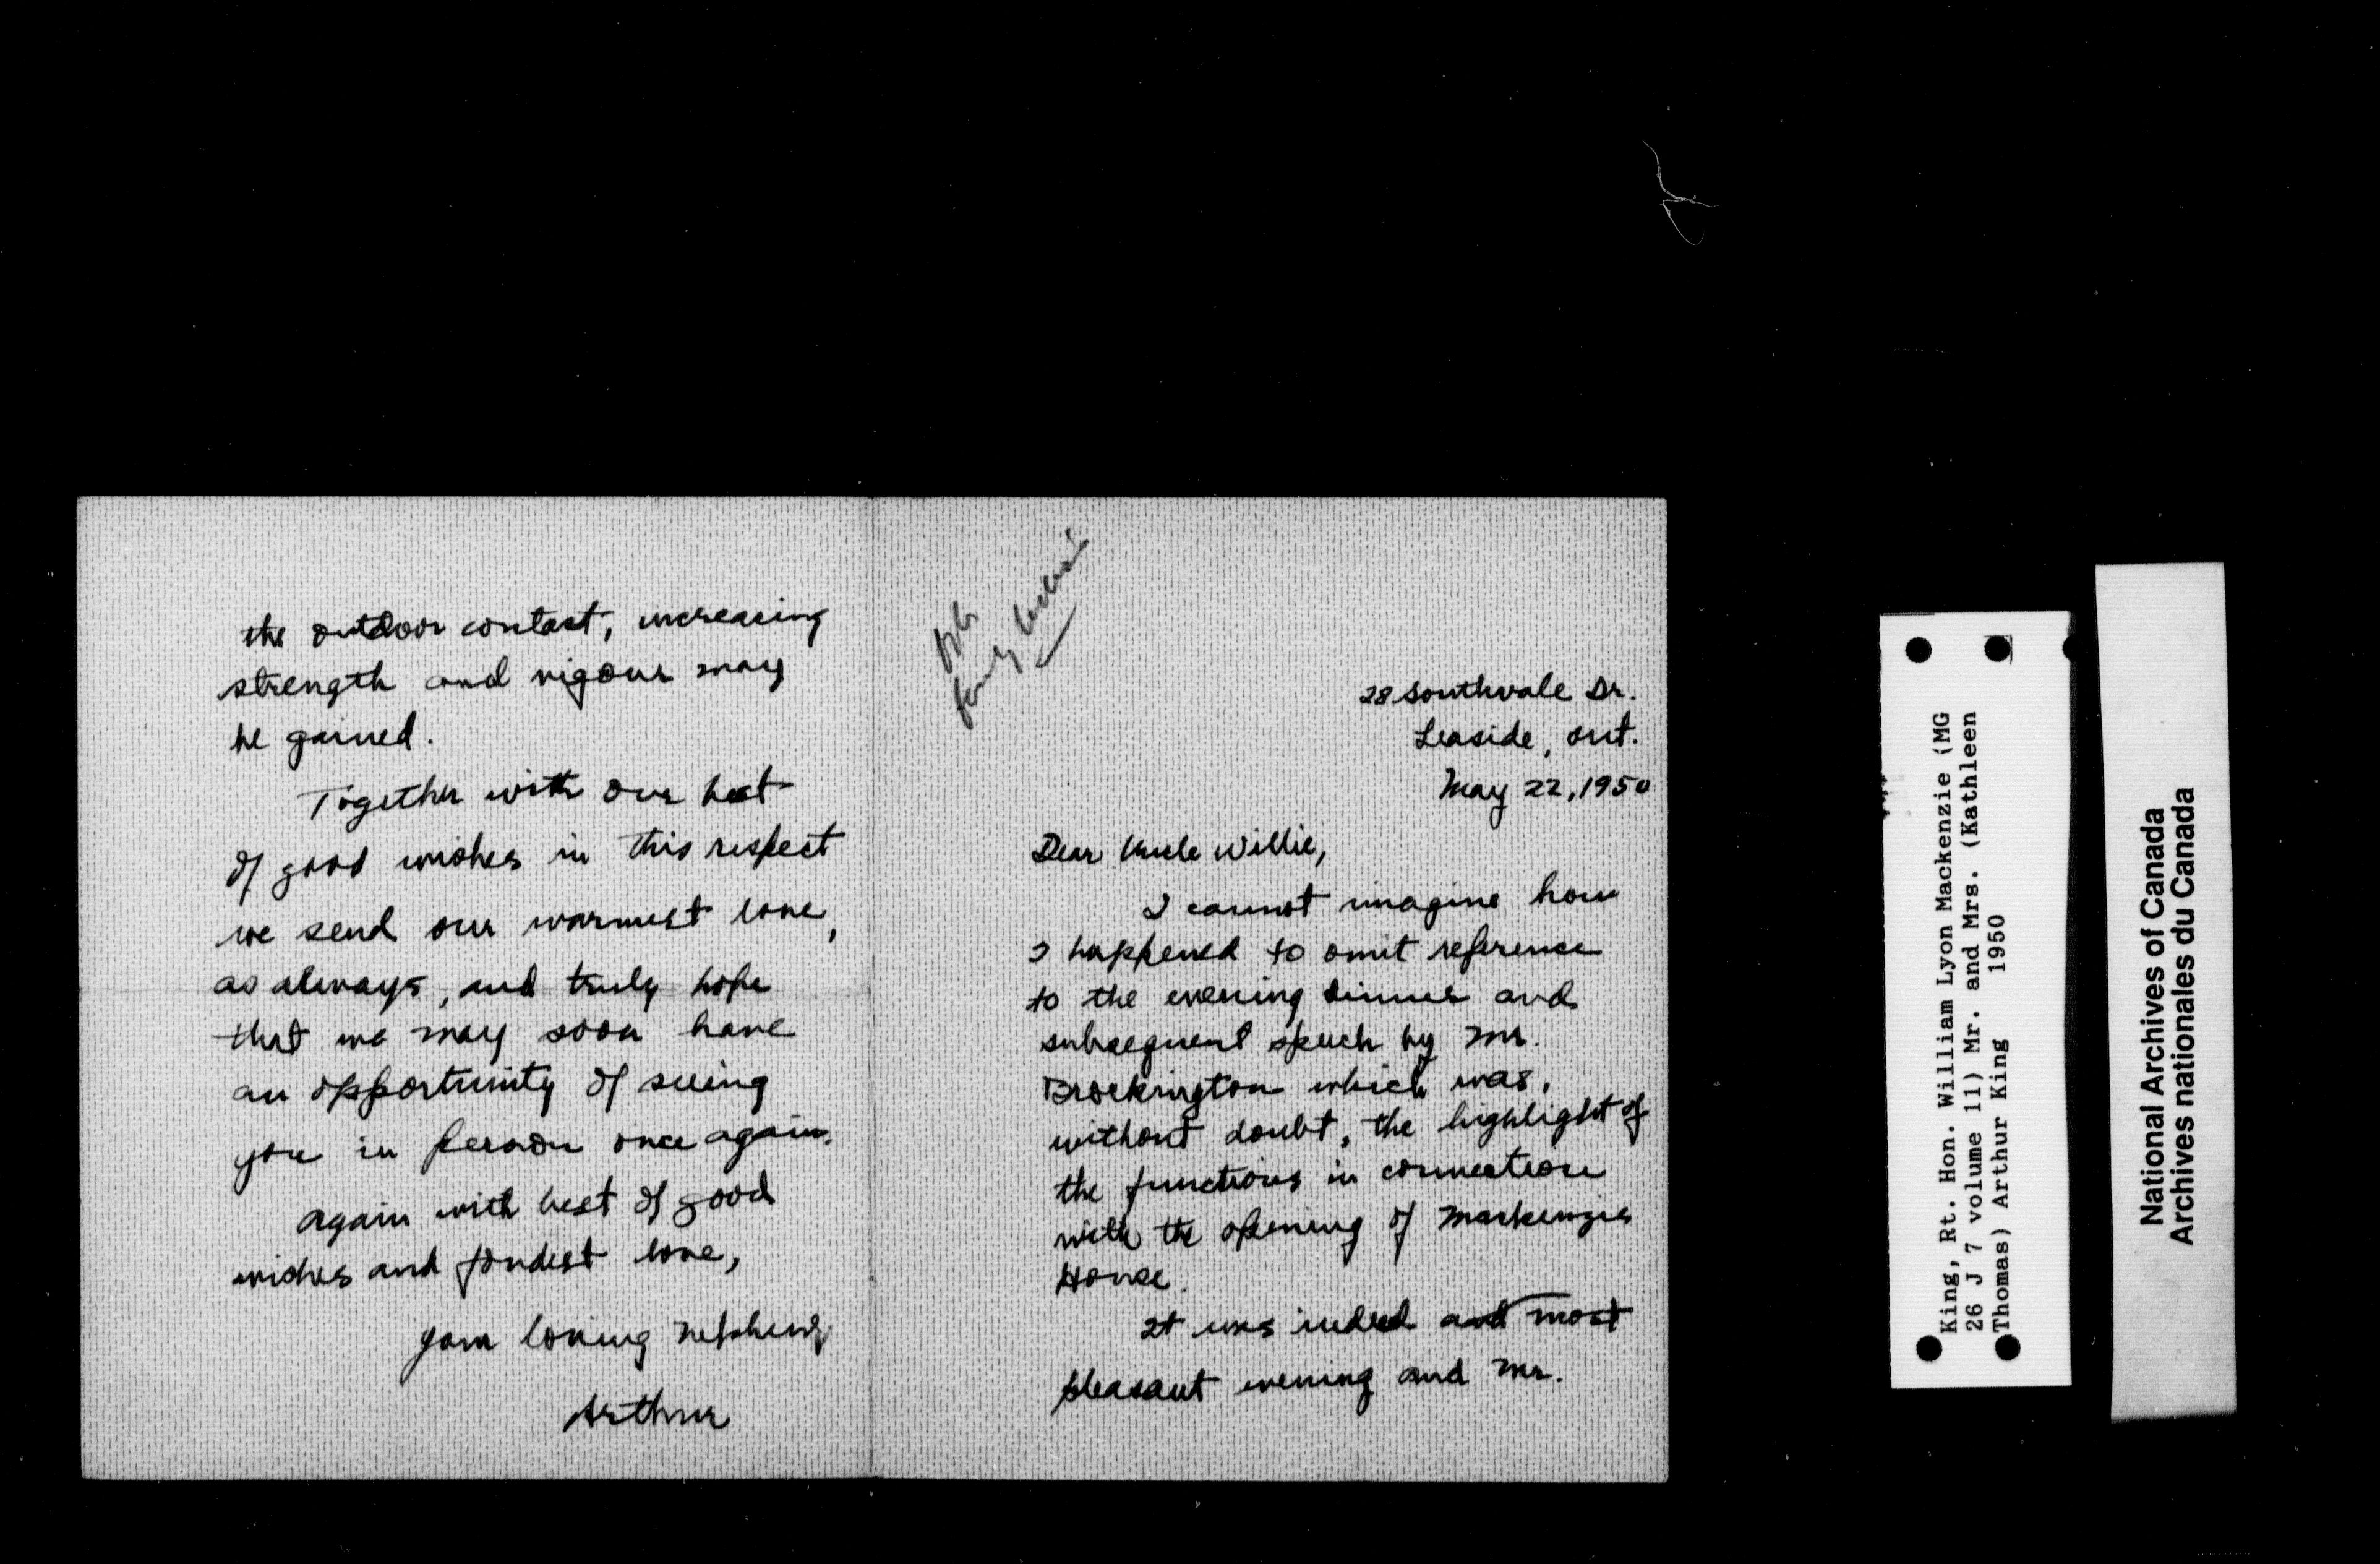 the outdoor contact, increasing
strength and vigour may
be gained.
Together with our best
of good wishes in this respect
we send our warmest love,
as always, and truly hope
that we may soon have
an opportunity of seeing
you in person once again.
Again with best of good
wishes and fondest love,
Your loving nephew
Arthur
family
28 Southvale Dr.
Leaside, Ont.
May 22, 1950
Dear Uncle Willie,
I cannot imagine how
I happened to omit reference
to the evening dinner and
subsequent speech by Mr.
Brockington which was,
without doubt, the highlight of
the functions in connection
with the opening of Mackenzie
House.
It was indeed a most
pleasant evening and Mr.
King, Rt. Hon. William Lyon Mackenzie (MG
26 J 7 volume 11) Mr. and Mrs. (Kathleen
Thomas) Arthur King 1950
National Archives of Canada
Archives nationales du Canada